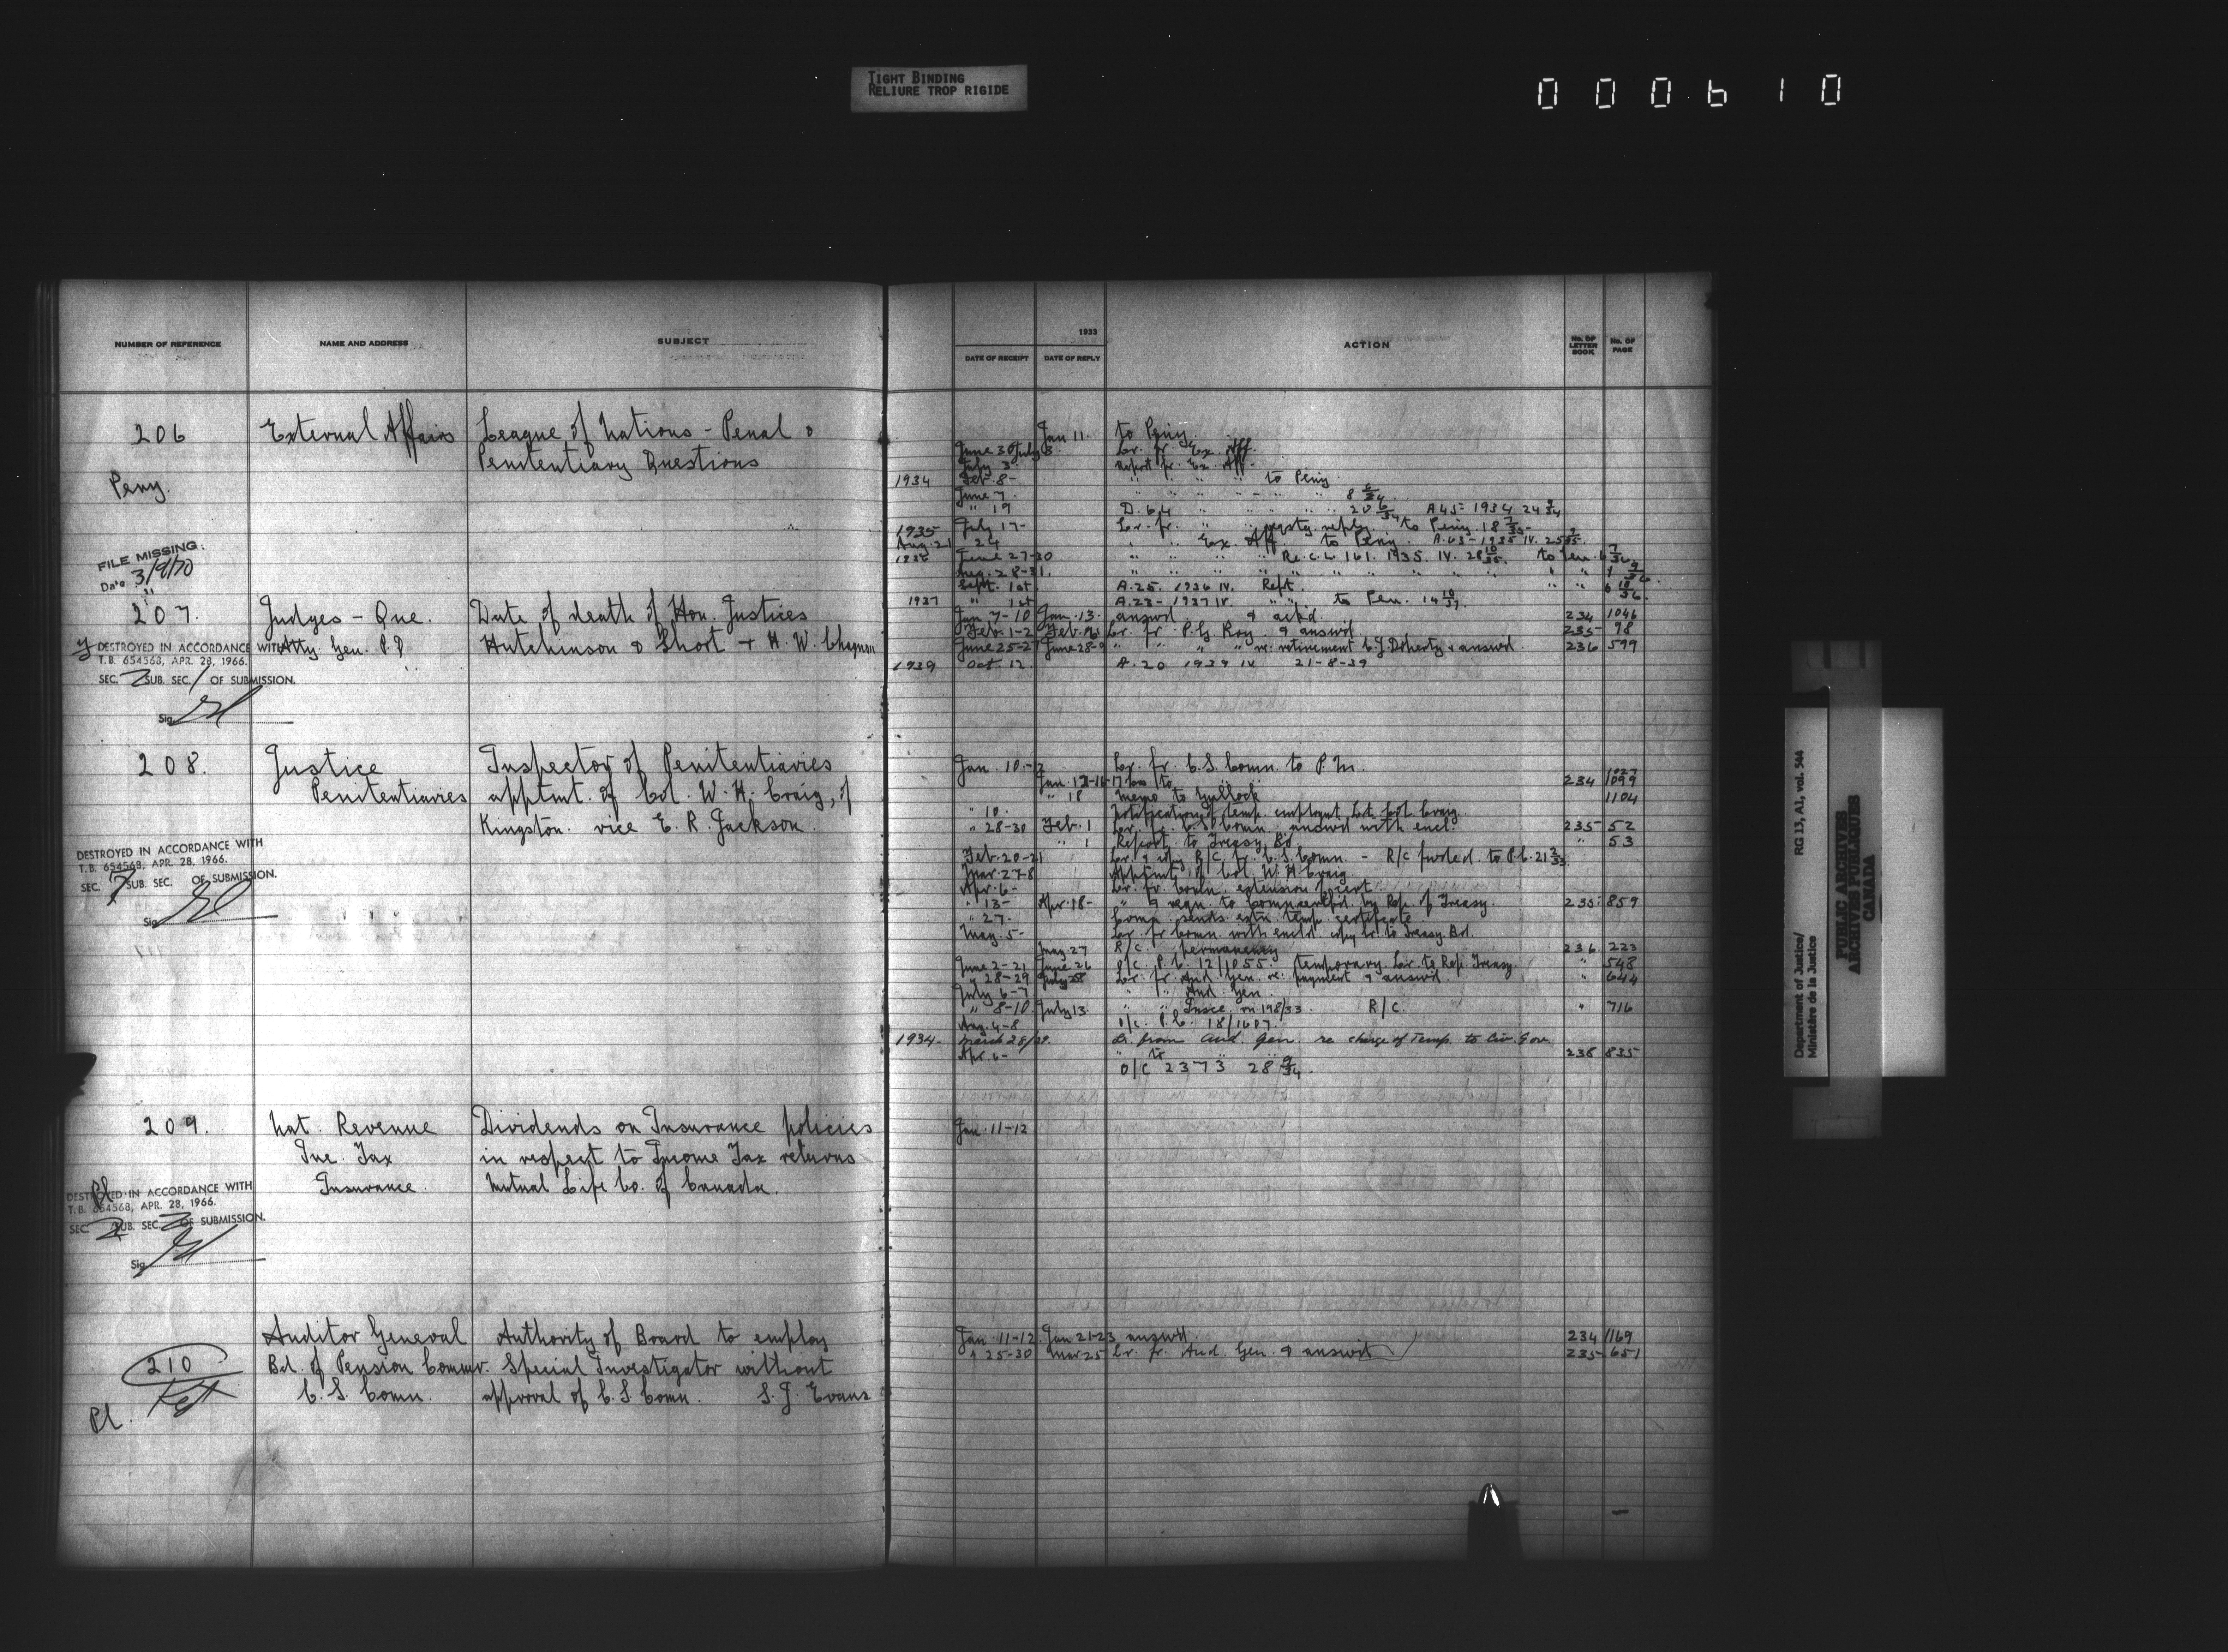 TIGHT BINDING
RELIURE TROP RIGIDE
000610
NUMBER OF REFERENCE
NAME AND ADDRESS
SUBJECT
206
External Affairs
League of Nations - Penal &
Penitentiary Questions
Peny.
FILE MISSING.
Date 3/9/70
207.
Judges - Que.
Date of death of Hon. Justices
Atty. Gen. P.Q.
Hutchinson & Short + H. W. Chagnon
DESTROYED IN ACCORDANCE WITH
T.B. 654568, APR. 28, 1966.
SEC. 2 SUB. SEC. 1 OF SUBMISSION.
Sig.
208.
Justice
Inspector of Penitentiaries
Penitentiaries
apptmt. of Col. W. H. Craig, of
Kingston. vice E. R. Jackson.
DESTROYED IN ACCORDANCE WITH
T.B. 654568, APR. 28, 1966.
SEC. 7 SUB. SEC. OF SUBMISSION.
Sig.
209.
Nat. Revenue
Dividends on Insurance policies
Inc. Tax
in respect to Income Tax returns
Insurance.
Mutual Life Co. of Canada.
Pl
DESTROYED IN ACCORDANCE WITH
T.B. 654568, APR. 28, 1966.
SEC. 2 SUB. SEC. 3 OF SUBMISSION.
Sig.
210
Auditor General
Authority of Board to employ
Bd. of Pension Commr.
Special Investigator without
C. S. Comn.
approval of C. S. Comn. S. J. Evans
Pl.
1933
DATE OF RECEIPT
DATE OF REPLY
ACTION
No. OF LETTER BOOK
No. OF PAGE
Jan 11. to Peny.
June 30 July 3 Lr. fr. Ex. Aff.
July 3 Report fr. Ex. Aff.
1934 Feb. 8- " " " " to Peny
June 7. " " " " - " " 8 6/34.
" 19 D. 64 " " " " 20 6/34 A 45- 1934 24 9/34
1935 July 17- Lr. fr. " " rqstg. reply. to Peny. 18 7/35-
Aug. 21 24 " " Ex. Aff. to Peny. A.63-1935 IV.
1936 June 27-30 " " " " Re. C.L 161. 1935. IV. 28 10/35. to Pen. 6 7/36
Aug. 28-31. " " " " " " " "
Sept. 1st A.25. 1936 IV. Rept. " " 6 10/36.
1937 " 1st A.23- 1937 IV. " " to Pen. 14 10/37.
Jan 7-10 Jan. 13. answd & ackd. 234 1046
Feb. 1-2 Lr. fr. P.G. Roy. & answd 235- 98
June 25-27 June 28-9 " " " " re: retirement C.J. Doherty & answd. 236 599
1939 Oct. 12. A.20 1939 IV 21-8-39
Jan. 10-12 Lr. fr. C.S. Comn. to P.M. 1027
Jan. 12-16-17 234 1099
" 18 Memo to Gullock 1104
" 10. Notification of temp. employmt Lt. Col. Craig.
" 28-30 Feb. 1 Lr. fr. C.S. Comn. answd with encl. 235- 52
" 1 Report to Treasy. Bd. " 53
Feb. 20-21 Lr. & copy R/C fr. C.S. Comn. - R/C fwded. to P.C. 21 2/33.
Mar. 27-8 Apptmt. of Col. W. H. Craig
Apr. 6- Lr. fr. Comn. extension of cert.
" 13- Apr. 18- " & reqn. to Comn. by Rep. of Treasy. 235- 859
" 27- Comn. sends extn. temp. certificate
May. 5- Lr. fr. Comn. with encld. copy lr. to Treasy. Bd.
May. 27 R/C. permanency 236. 223
June 2-21 June 26 O/C. P.C. 12/1055. temporary. Lr. to Rep. Treasy. " 548
" 28-29 July 28 Lr. fr. Aud. Gen. re: payment & answd. " 644
July 6-7 " " Aud. Gen.
" 8-10 July 13. " " Insce. m 198/33. R/C. " 716
Aug. 4-8 O/C. P.C. 18/1607.
1934- March 28/29. Lr. from Aud. Gen. re charge of Temp. to Civ. Gov.
Apr. 6- " to " " 238 835-
O/C 2373 28 9/34.
Jan. 11-12
Jan. 11-12. Jan 21-23 answd. 234 1169
" 25-30 Mar 25 Lr. fr. Aud. Gen. & answd 235- 651
Department of Justice/
Ministère de la Justice
RG 13, A1, vol. 544
PUBLIC ARCHIVES
ARCHIVES PUBLIQUES
CANADA